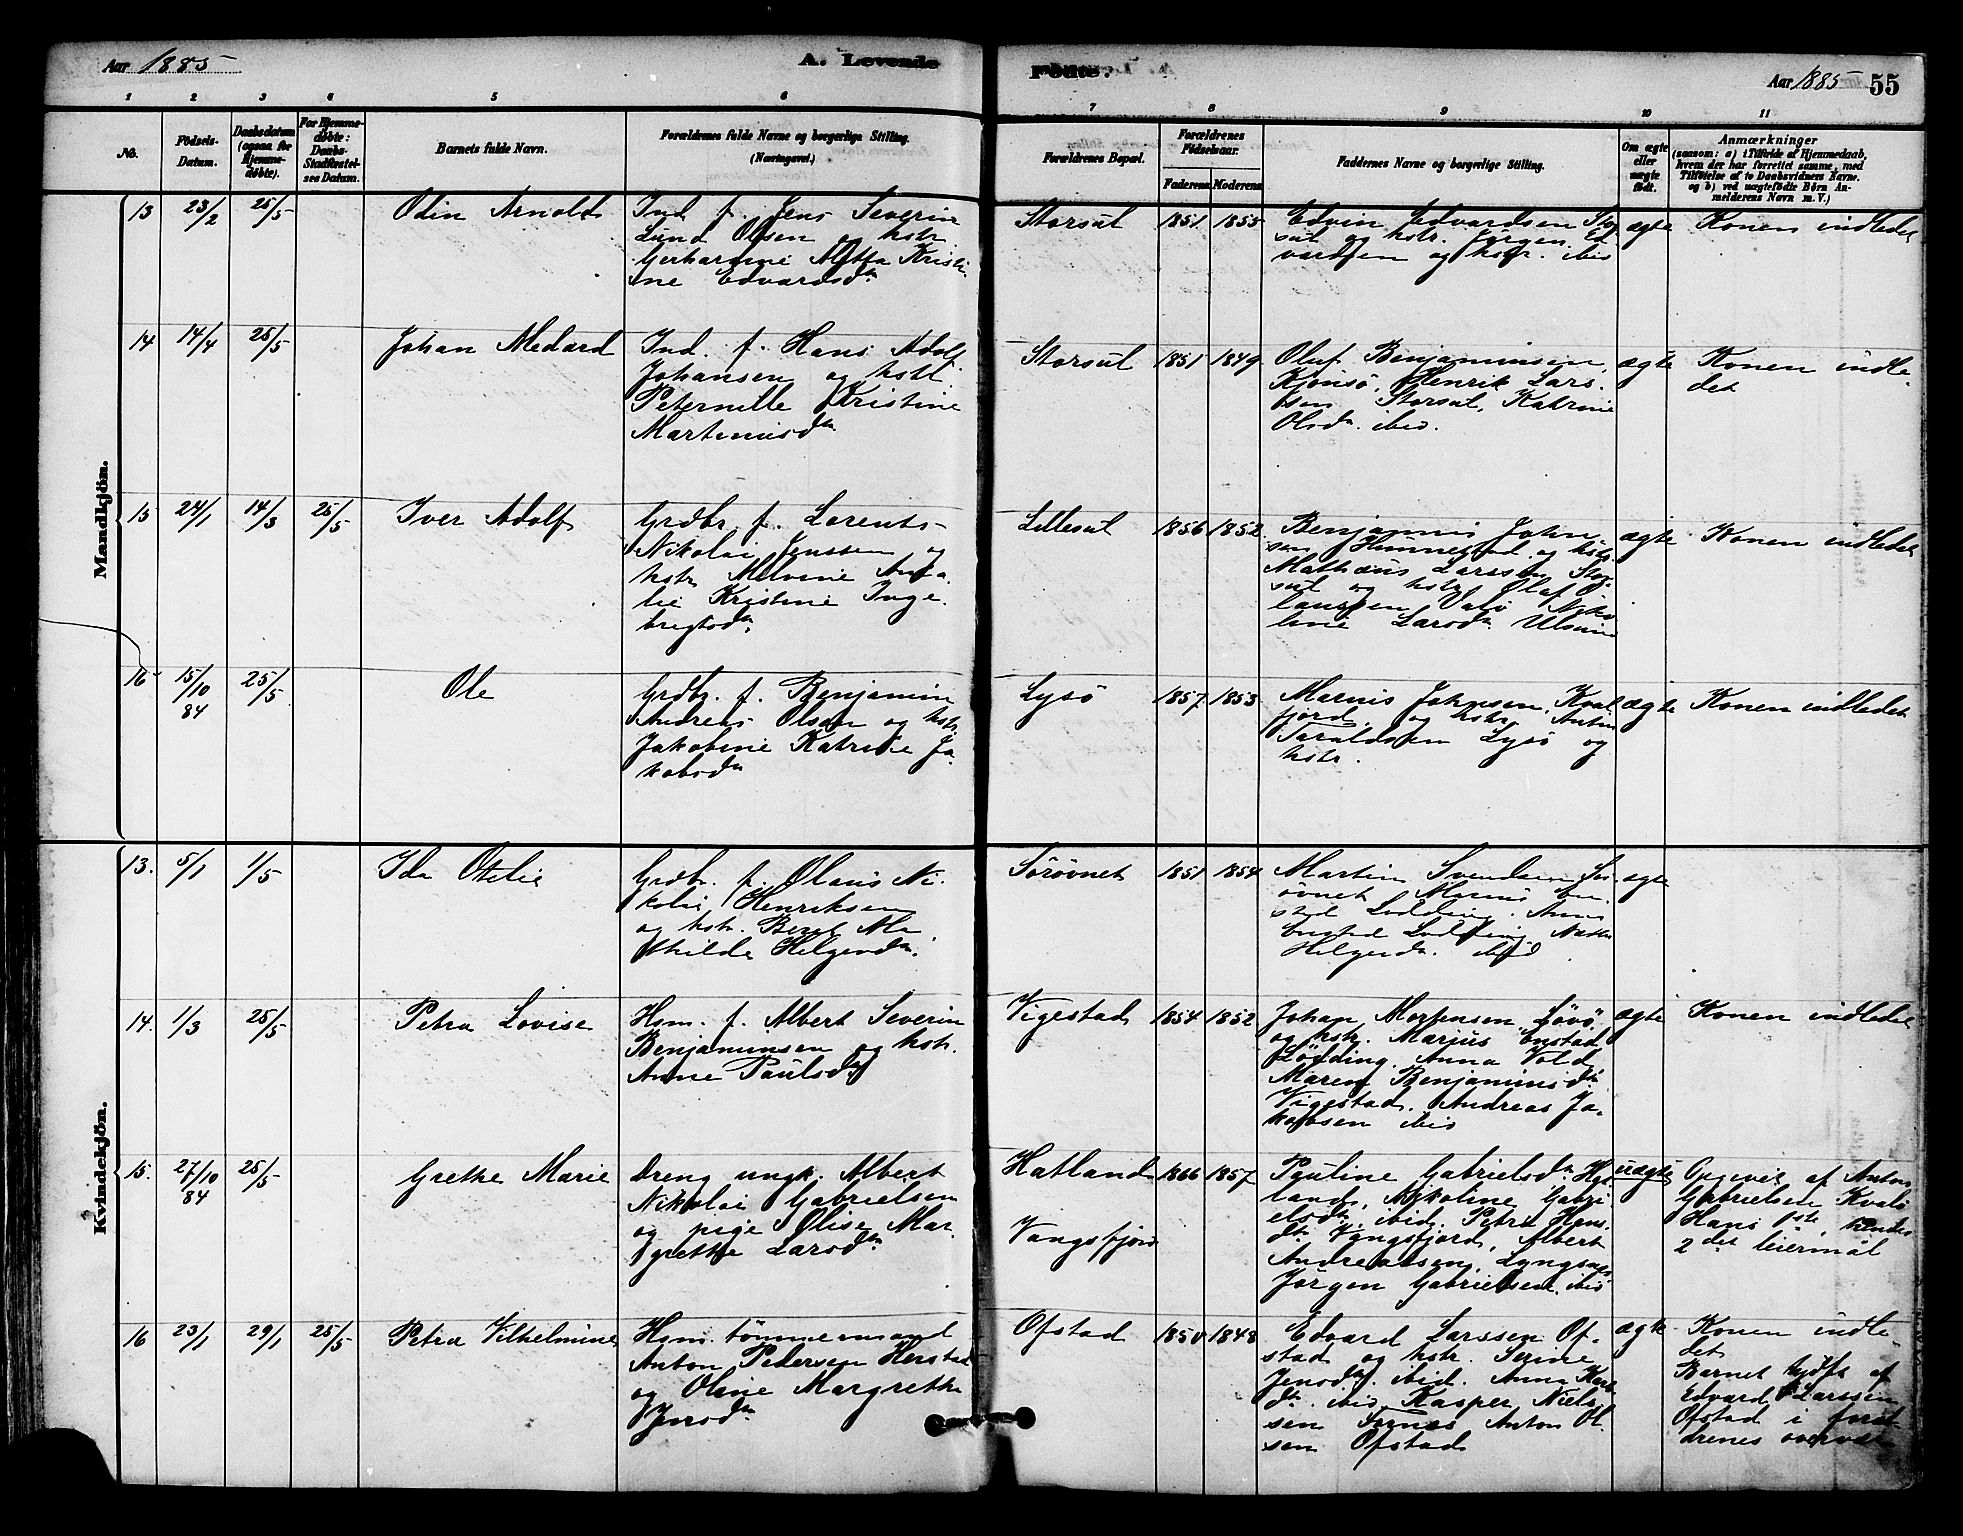 Aar 1885
A. Levende
Födte.
Aar 1885
55
1 2 3 4 5 6 7 8 9 10 11
No.
Födsels-
Datum.
Daabsdatum
(ogsaa for
Hjemme-
døbte).
For Hjemme-
døbte:
Daabs-
Stadfæstel-
ses Datum.
Barnets fulde Navn.
Forældrenes fulde Navne og borgerlige Stilling.
(Næringsvei.)
Forældrenes Bopæl.
Forældrenes
Födselsaar.
Faderens
Moderens
Faddernes Navne og borgerlige Stilling.
Om ægte
eller
uægte
født.
Anmærkninger
(saasom: a) i Tilfælde af Hjemmedaab,
hvem der har forrettet samme, med
Tilföielse af to Daabsvidners Navne.
og b) ved uægtefödte Börn An-
melderens Navn m. V.)
Mandkjön.
13 23/2 25/5
Odin Arnold
Ind f. Jens Severin
Lund Olsen og hstr
Gerhardine Kristi-
ne Edvardsdtr
Storsul 1851 1855
Edvin Edvardsen Stor
sul og hstr. Jørgen Ed
vardsen og hstr. ibid
ægte
Konen indledet
14 14/4 25/5
Johan Medard
Ind. f. Hans Adolf
Johansen og hstr.
Peternille Kristine
Martinusdtr
Storsul 1851 1849
Oluf Benjaminsen,
Kjønsø, Henrik Lars-
sen Storsul, Katrine
Olsdtr. ibid.
ægte
Konen indle-
det
15 24/1 14/3 25/5
Iver Adolf
Grdbr. f. Lorents
Nikolai Jenssen og
hstr Melvine Ama-
lie Kristine Inge-
brigtsdtr
Lillesul 1856 1852
Benjamin Johan-
sen og hstr.
Mathæus Larssen Stor
sul og hstr Olaf
Valø Niko
line Larsdtr.
ægte
Konen indledet
16 15/10 84 25/5
Ole
Grdbr. f. Benjamin
Andreas Olsen og hstr.
Jakobine Katrine Ja-
kobsdtr
Lysø 1857 1853
Marius Johnsen, Kval
fjord og hstr, Anton
Taraldsen Lysø og
hstr.
ægte
Konen indledet
Kvindekjön.
13. 5/1 1/5
Ida Otelie
Grdbr. f. Olaus Ni-
kolai Henriksen
og hstr. Beret Ma
thilde Helgesdtr.
Sørøvnet 1851 1854
Martin Svendsen Sør
øvnet Marius En
stad Lødding. Anna
Enstad Lødding.
Helgesdtr. ibid
ægte
14. 1/3 25/5
Petra Lovise
Hsm. f. Albert Severin
Benjaminsen og hstr.
Anne Paulsdtr
Vigestad 1854 1852
Johan Mortensen, Løvø
og hstr. Marius Enstad
Lødding, Anna Vold
Maren Benjaminsdtr
Vigestad. Andreas Ja-
kobsen ibid
ægte
Konen indledet
15. 27/10 84 25/5
Grethe Marie
Dreng ungk. Albert
Nikolai Gabrielsen
og pige Olise Mar-
grethe Larsdtr
Hatland
Vangsfjord
1866 1857
Pauline Gabrielsdtr Hat
land, Nikoline Gabri-
elsdtr. ibid, Petra Hans-
dtr Vangsfjord, Albert
Andreassen, Lyngsnes
Jørgen Gabrielsen. ibid
uægte
Opgivet af Anton
Gabrielsen Kvalø
Hans 1ste, hendes
2det leiermål
16 23/1 29/1 25/5
Petra Vilhelmine
Hsm. tømmermand
Anton Pedersen
og Oline Margrethe
Jensdtr
Ofstad 1850 1848
Edvard Larssen Of-
stad og hstr. Serine
Jensdtr. ibid. Anna
dtr. ibid, Kasper Niels-
sen Anton Ol-
sen Ofstad
ægte
Konen indle-
det
Barnet hjdøft af
Edvard Larssen
Ofstad i foræl-
drenes overvær